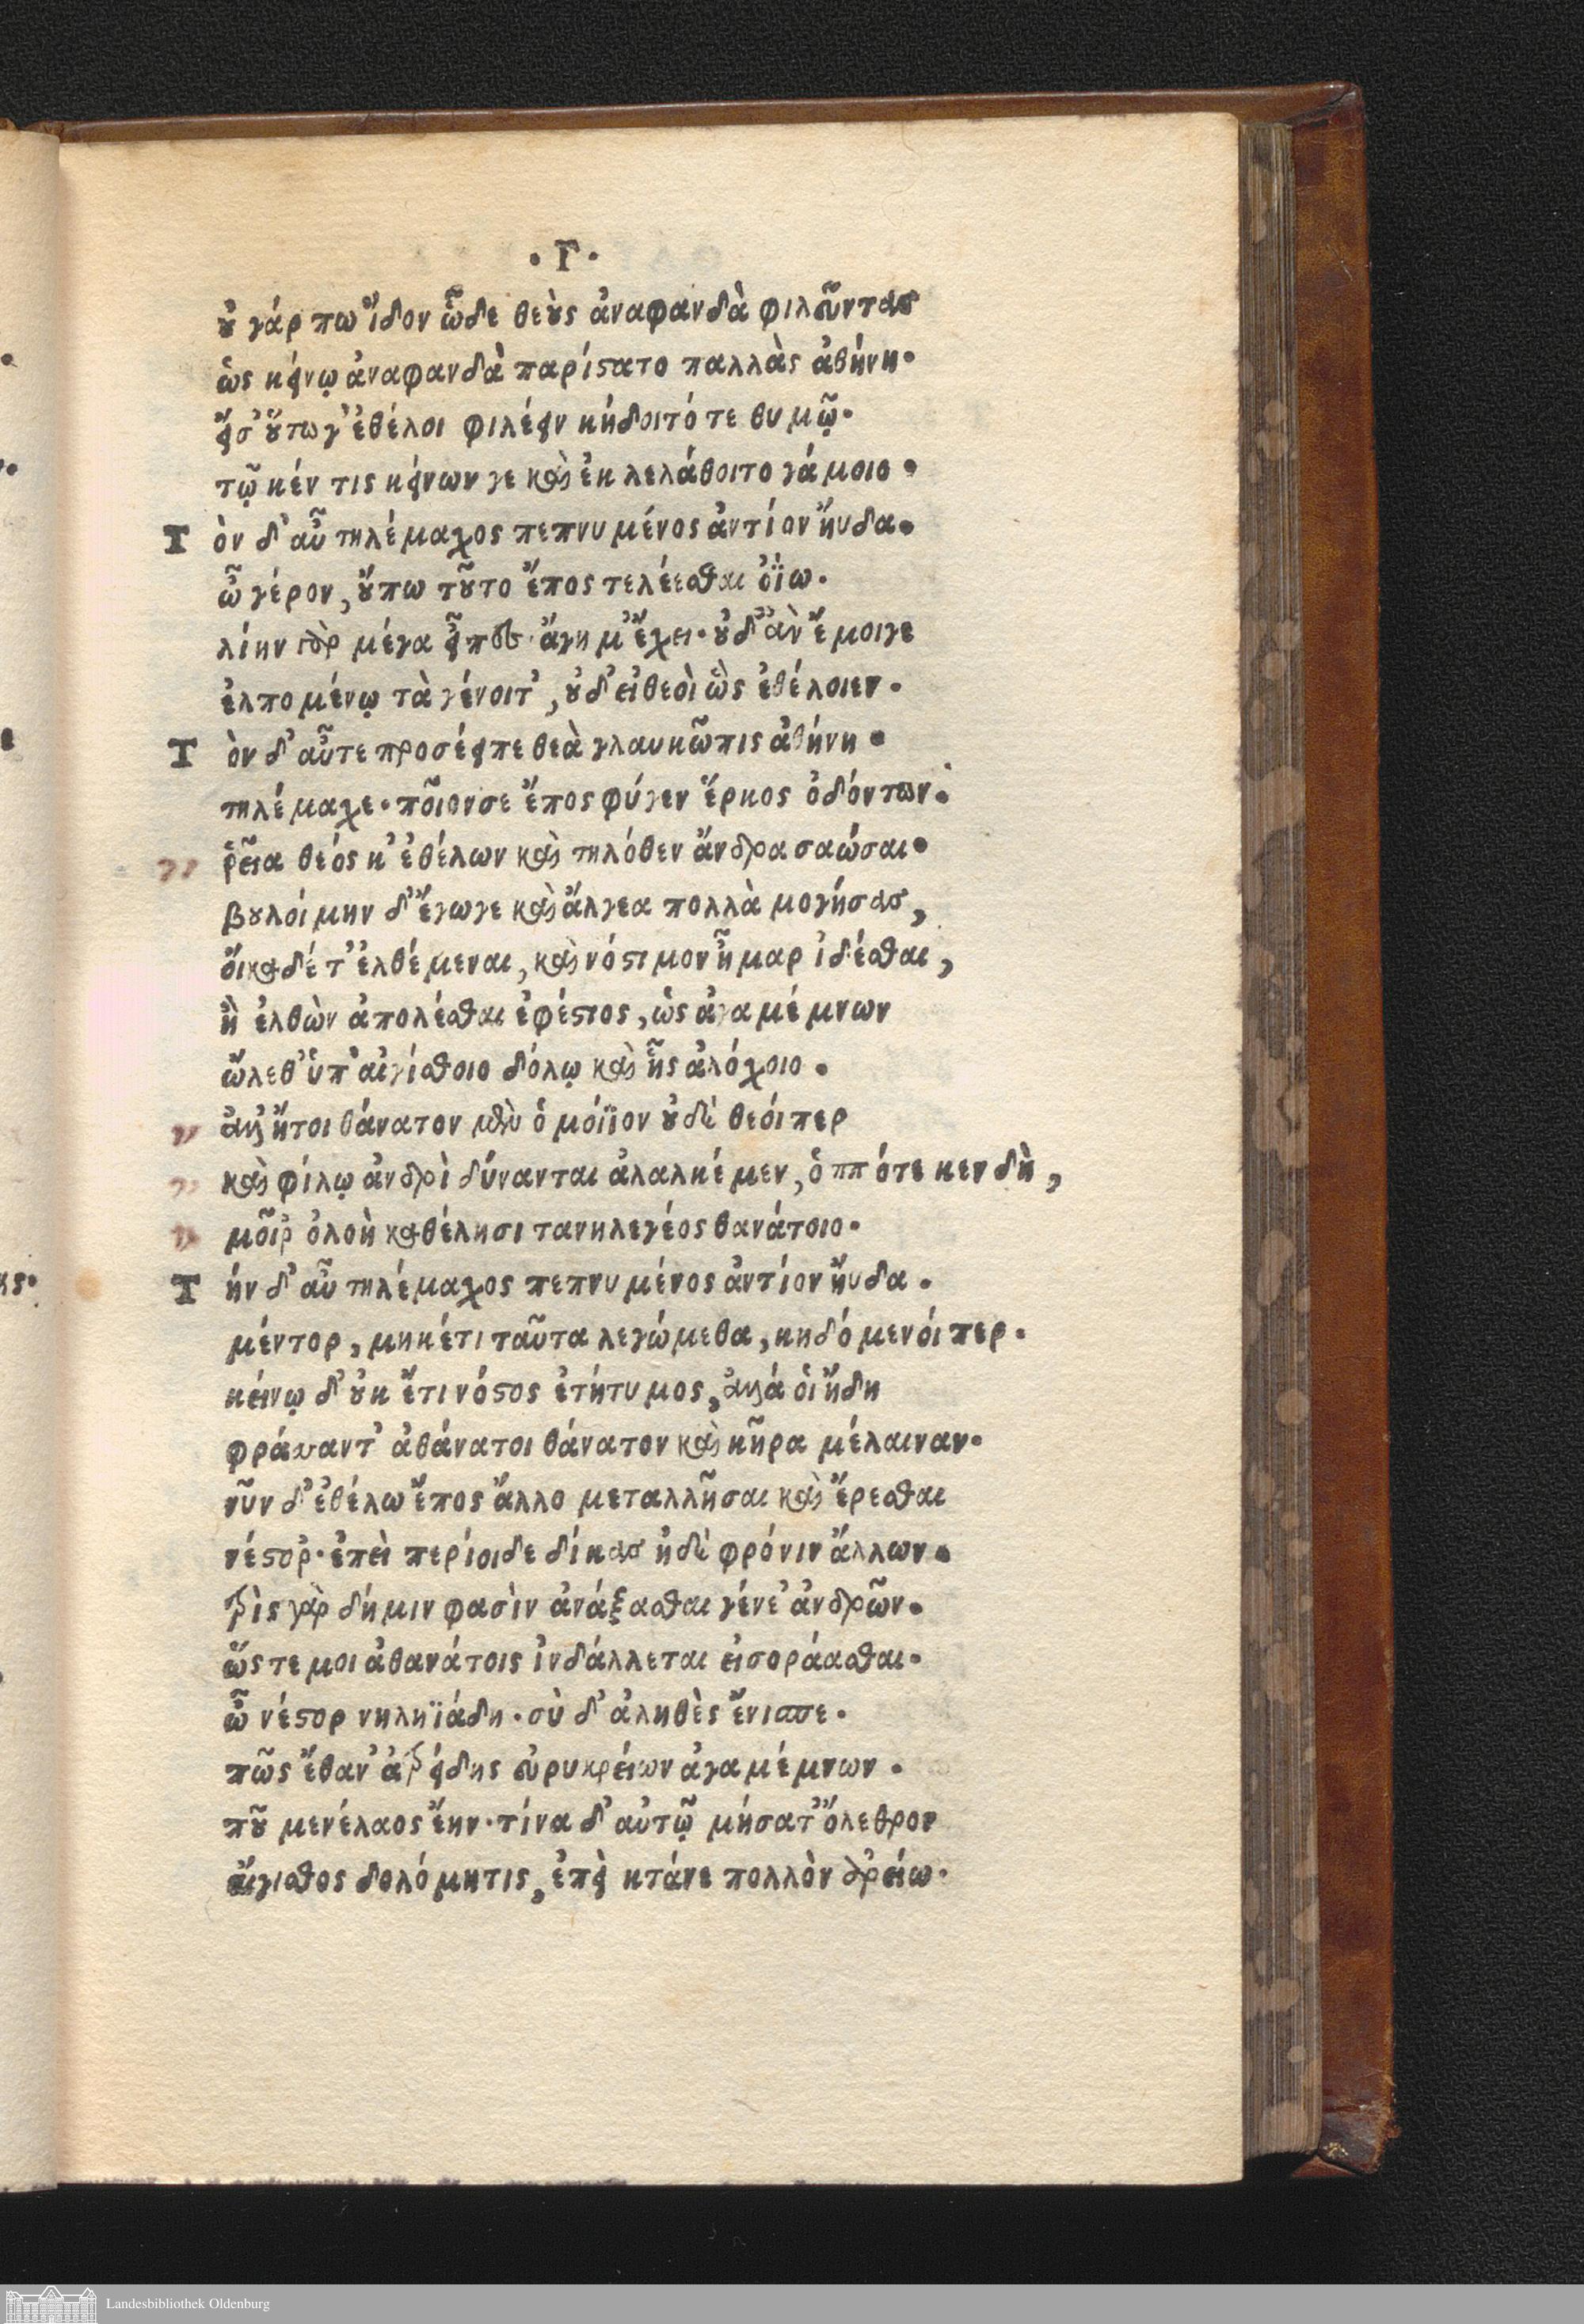 · Γ ·
οὐ γάρ πω ἴδον ὧδε θεοὺς ἀναφανδὰ φιλεῦντας
ὡς κείνῳ ἀναφανδὰ παρίστατο παλλὰς ἀθήνη·
εἴ σ' οὕτω γ' ἐθέλοι φιλέειν κήδοιτό τε θυμῷ·
τῷ κέν τις κείνων γε καὶ ἐκ λελάθοιτο γάμοιο·
Τὸν δ' αὖ τηλέμαχος πεπνυμένος ἀντίον ἤυδα·
ὦ γέρον, οὔπω τοῦτο ἔπος τελέεσθαι ὀΐω·
λίην γὰρ μέγα εἶπες· ἄγη μ' ἔχει· οὐδ' ἂν ἔμοιγε
ἐλπομένῳ τὰ γένοιτ', οὐδ' εἰ θεοὶ ὣς ἐθέλοιεν·
Τὸν δ' αὖτε προσέειπε θεὰ γλαυκῶπις ἀθήνη·
τηλέμαχε· ποῖόν σε ἔπος φύγεν ἕρκος ὀδόντων·
ῥεῖα θεός κ' ἐθέλων καὶ τηλόθεν ἄνδρα σαώσαι·
βουλοίμην δ' ἔγωγε καὶ ἄλγεα πολλὰ μογήσας,
οἴκαδέ τ' ἐλθέμεναι, καὶ νόστιμον ἦμαρ ἰδέσθαι,
ἢ ἐλθὼν ἀπολέσθαι ἐφέστιος, ὡς ἀγαμέμνων
ὤλεθ' ὑπ' αἰγίσθοιο δόλῳ καὶ ἧς ἀλόχοιο·
ἀλλ' ἤτοι θάνατον μὲν ὁμοίϊον οὐδὲ θεοί περ
καὶ φίλῳ ἀνδρὶ δύνανται ἀλαλκέμεν, ὁππότε κεν δὴ,
μοῖρ' ὀλοὴ καθέλησι τανηλεγέος θανάτοιο·
Τήν δ' αὖ τηλέμαχος πεπνυμένος ἀντίον ἤυδα·
μέντορ, μηκέτι ταῦτα λεγώμεθα, κηδόμενοί περ·
κείνῳ δ' οὐκ ἔτι νόστος ἐτήτυμος, ἀλλά οἱ ἤδη
φράσσαντ' ἀθάνατοι θάνατον καὶ κῆρα μέλαιναν·
νῦν δ' ἐθέλω ἔπος ἄλλο μεταλλῆσαι καὶ ἔρεσθαι
νέστορ'· ἐπεὶ περίοιδε δίκας ἠδὲ φρόνιν ἄλλων·
τρὶς γὰρ δή μιν φασὶν ἀνάξασθαι γένε' ἀνδρῶν·
ὥς τε μοι ἀθανάτοις ἰνδάλλεται εἰσοράασθαι·
ὦ νέστορ νηληϊάδη· σὺ δ' ἀληθὲς ἔνισσε·
πῶς ἔθαν' ἀτρείδης εὐρυκρείων ἀγαμέμνων·
ποῦ μενέλαος ἔην· τίνα δ' αὐτῷ μήσατ' ὄλεθρον
αἴγισθος δολόμητις, ἐπεὶ κτάνε πολλὸν ἀρείω·
Landesbibliothek Oldenburg